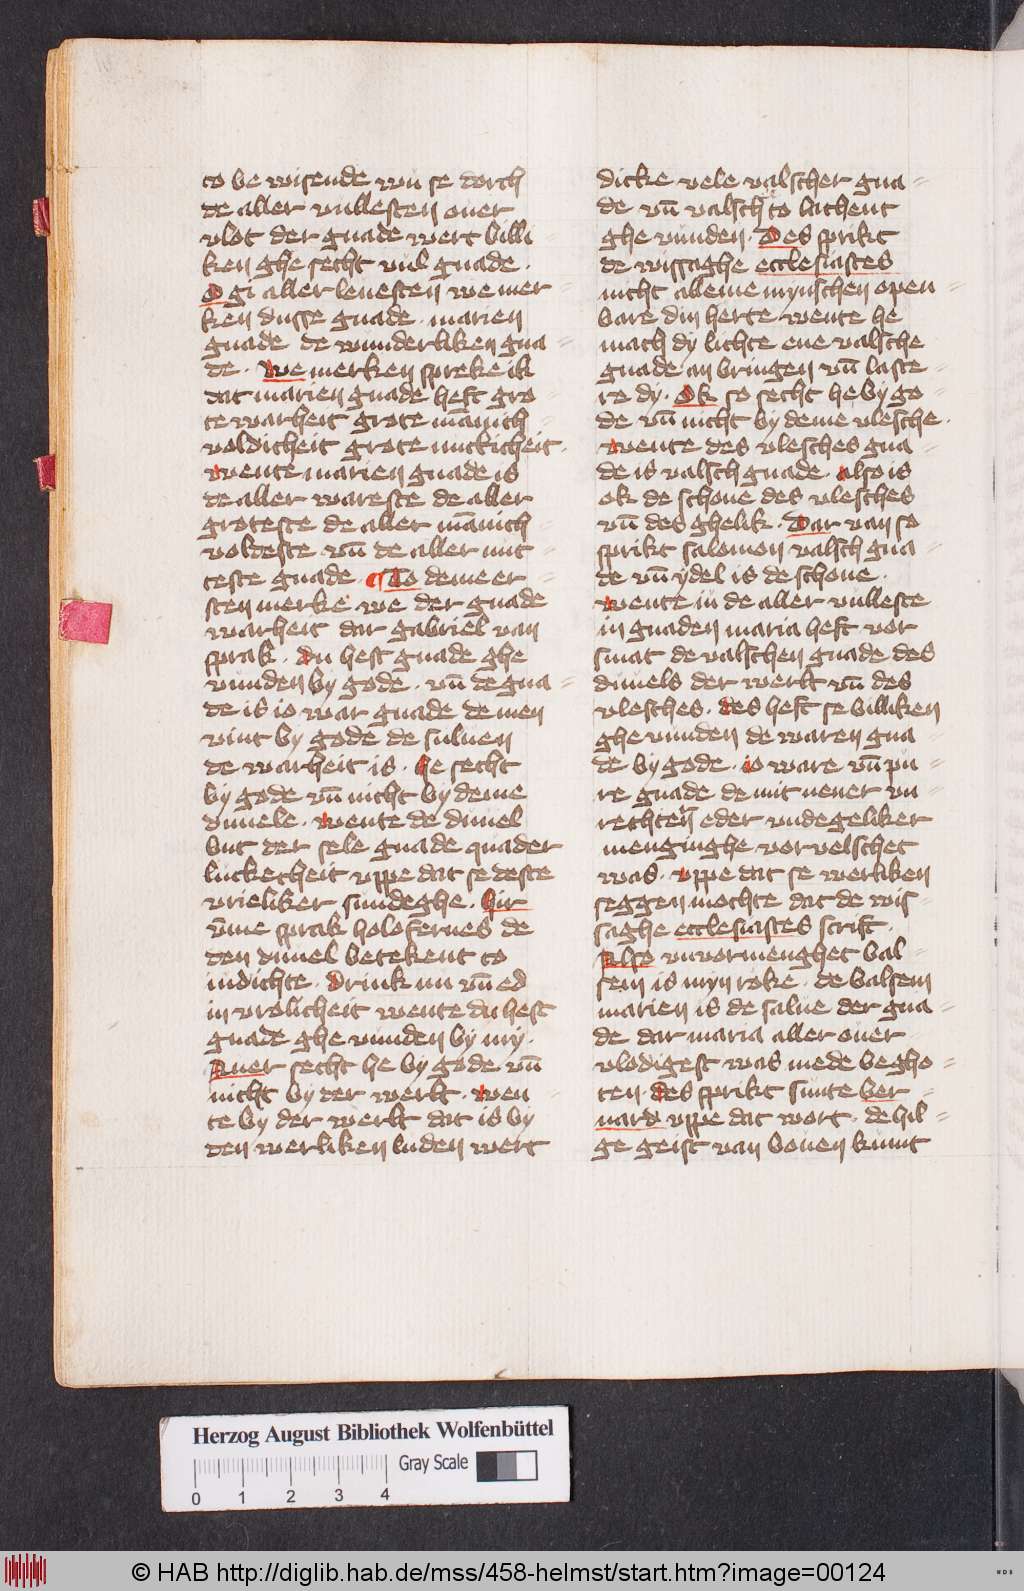 to be wisende wu se dorch
de aller vullesten ouer
vlot der gnade wert billi
ken ghe secht vul gnade .
O gi aller leuesten we mer =
ken dusse gnade . marien
gnade de wunderliken gna =
de . We merken spreke ik
dat marien gnade heft gro =
te warheit grote manich =
voldicheit grote nutticheit .
wente marien gnade is
de aller wareste de aller
groteste de aller mānich =
voldeste vn̄ de aller nut =
teste gnade . ¶ To deme er =
sten merke we der gnade
warheit dar gabriel van
sprak . du hest gnade ghe
vunden by gode . vn̄ de gna =
de is io war gnade de men
vint by gode de suluen
de warheit is . he secht
by gode vn̄ nicht by deme
duuele . wente de duuel
but der sele gnade quader
luckecheit vppe dat se deste
vrieliker sundeghe . hir
v̄me sprak holofernes de
den duuel betekent to
iudichte . Drink nu vn̄ ed
in vrolicheit wente du hest
gnade ghe vunden by my .
Auer secht he by gode vn̄
nicht by der werlt . wen =
te by der werlt dat is by
den werliken luden wert
dicke vele valscher gna =
de vn̄ valsch to lachent
ghe vunden . Des sprikt
de wissaghe ecclesiastes
nicht alleme mynschen open =
bare din herte wente he
mach dy lichte ene valsche
gnade an bringen vn̄ laste =
re dy . Ok so secht he by go =
de vn̄ nicht by deme vlesche .
wente des vlesches gna =
de is valsch gnade . also is
ok de schone des vlesches
vn̄ des ghelik . Dar van so
sprikt salomon valsch gna =
de vn̄ ydel is de schone .
wente in de aller vulleste
in gnaden maria heft vor
smat de valschen gnade des
duuels der werlt vn̄ des
vlesches . des heft se billiken
ghe vunden de waren gna =
de by gode . io ware vn̄ pu =
re gnade de mit nener vn =
rechten eder vndegeliker
menginghe vorvelschet
was . vppe dat se werliken
seggen mochte dat de wis =
saghe ecclesiastes scrift .
Also vnvormenghet bal =
sem is myn roke . de balsem
marien is de salue der gna =
de dar maria aller ouer
vlodigest was mede begho =
ten . des sprikt sunte ber =
nard vppe dat wort . de hil =
ge geist van bouen kumt
Herzog August Bibliothek Wolfenbüttel
Gray Scale
0 1 2 3 4
© HAB http://diglib.hab.de/mss/458-helmst/start.htm?image=00124